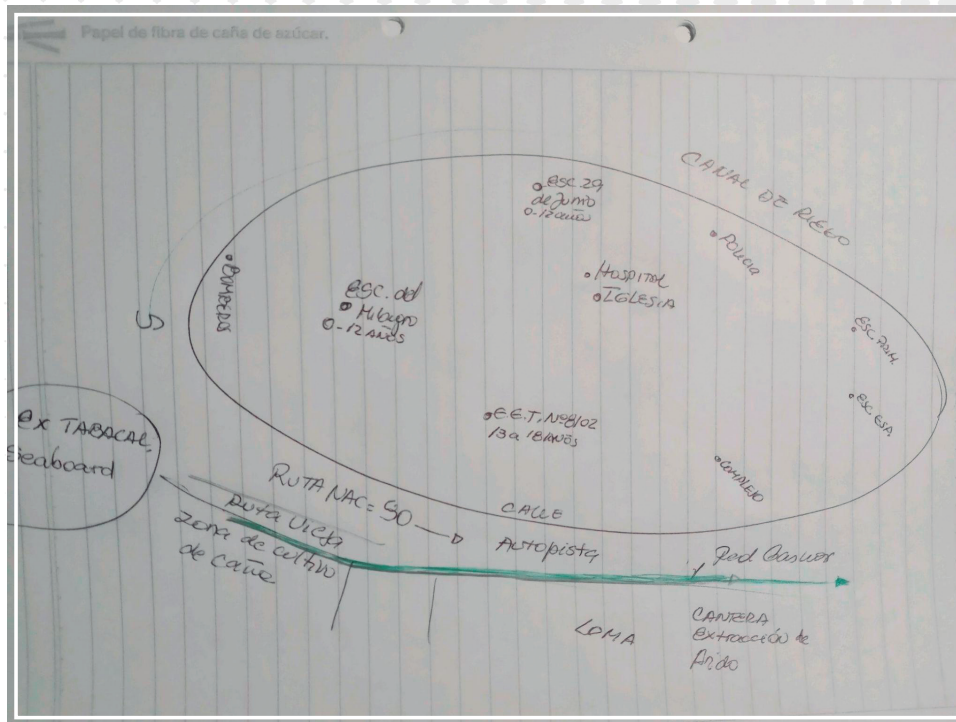 Papel de fibra de caña de azúcar.
CANAL DE RIEGO
esc. 29
de Junio
0-12 años
Policia
Hospital
Iglesia
Bomberos
esc. del
Milagro
0-12 años
esc. Prim.
esc. ESA.
E.E.T. Nº 8102
13 a 18 años
Complejo
ex TABACAL,
Seaboard
RUTA NAC = 50
CALLE
Ruta Vieja
Autopista
zona de cultivo
de caña
LOMA
CANTERA
extracción de
Arido